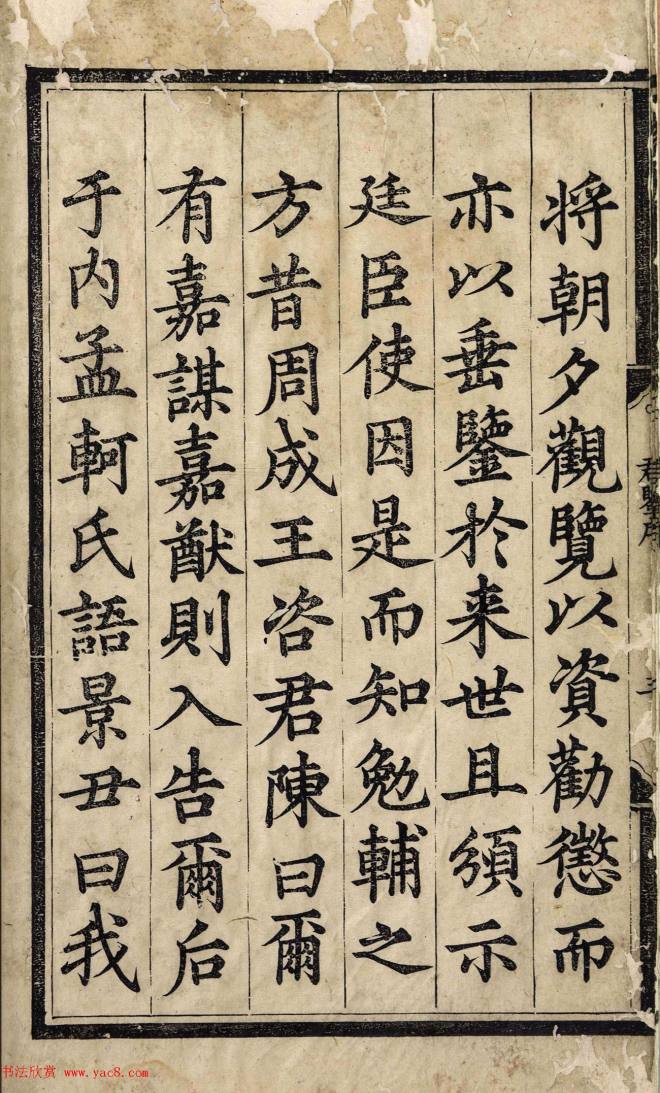 将朝夕觀覽以資勸懲而
亦以垂鑒於来世且頒示
廷臣使因是而知勉輔之
方昔周成王咨君陳曰爾
有嘉謀嘉猷則入告爾后
于内孟軻氏語景丑曰我
君鑒序
三
书法欣赏 www.yac8.com